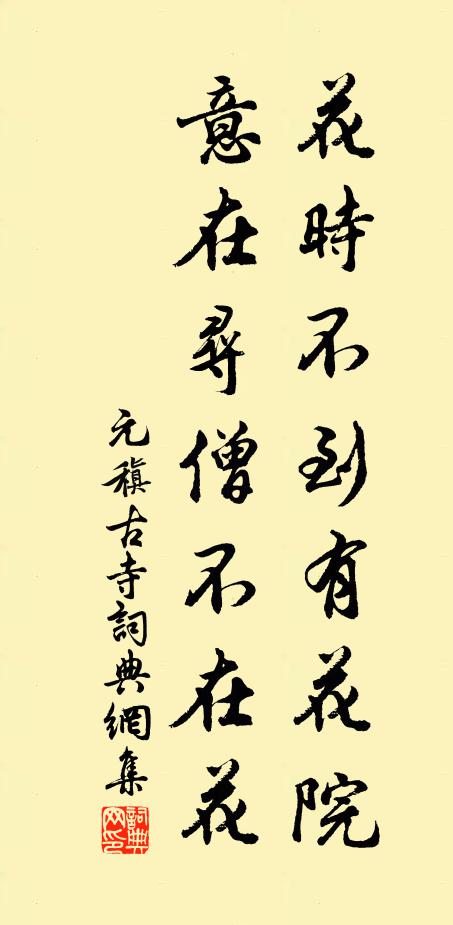 花時不到有花院
意在尋僧不在花
元稹古寺詞典網集
詞典网印